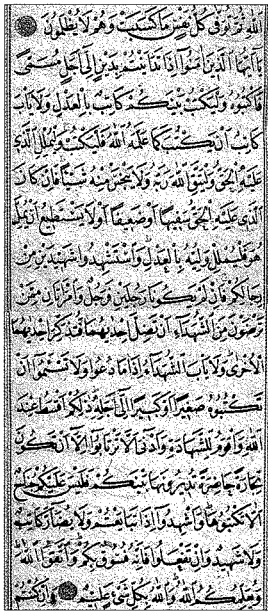 الله ثم توفى كل نفس ما كسبت وهم لا يظلمون
يا ايها الذين آمنوا اذا تداينتم بدين الى اجل مسمى
فاكتبوه وليكتب بينكم كاتب بالعدل ولا ياب
كاتب ان يكتب كما علمه الله فليكتب وليملل الذى
عليه الحق وليتق الله ربه ولا يبخس منه شيئا فان كان
الذى عليه الحق سفيها او ضعيفا او لا يستطيع ان يمل
هو فليملل وليه بالعدل واستشهدوا شهيدين من
رجالكم فان لم يكونا رجلين فرجل وامرأتان ممن
ترضون من الشهداء ان تضل احديهما فتذكر احديهما
الاخرى ولا ياب الشهداء اذا ما دعوا ولا تسئموا ان
تكتبوه صغيرا او كبيرا الى اجله ذلكم اقسط عند
الله واقوم للشهادة وادنى الا ترتابوا الا ان تكون
تجارة حاضرة تديرونها بينكم فليس عليكم جناح
الا تكتبوها واشهدوا اذا تبايعتم ولا يضار كاتب
ولا شهيد وان تفعلوا فانه فسوق بكم واتقوا الله
ويعلمكم الله والله بكل شىء عليم وان كنتم